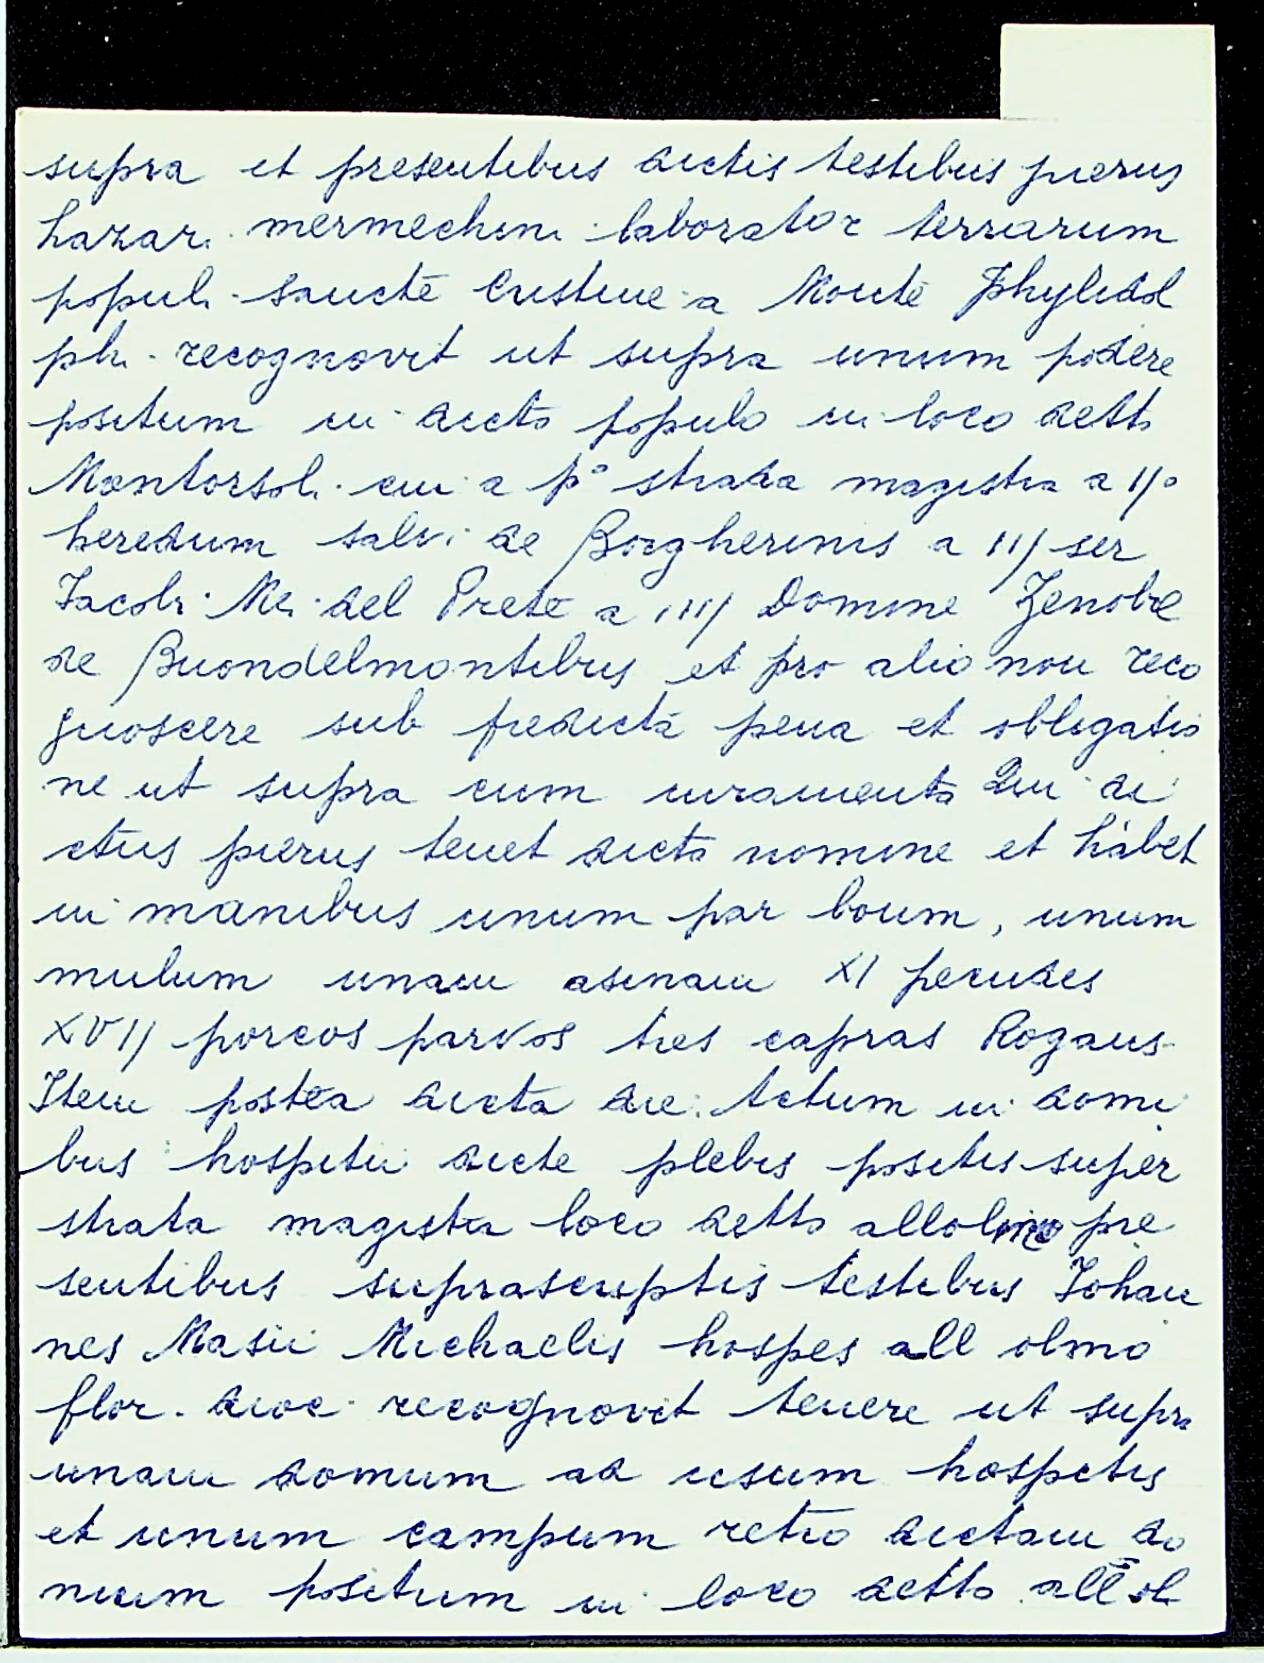 supra et presentibus dictis testibus pierus
Lazari mermechini laborator terrarum
populi Sancte Cristine a Monte Phylidol
phi recognovit ut supra unum podere
positum in dicto populo in loco detto
Montorsoli cui a p° strada magistra a IJ°
heredum salvi de Borgherinis a IIJ ser
Iacobi Mei del Prete a IIIJ Domine Zenobie
de Buondelmontibus et pro alio non reco
gnoscere sub predicta pena et obligatio
ne ut supra cum iuramento Qui di
ctus pierus tenet dicto nomine et habet
in manibus unum par boum, unum
mulum unam asinam XI pecudes
XVIJ porcos parvos tres capras Rogans
Item postea dicta die. Actum in domi
bus hospitii dicte plebis positis super
strata magistra loco detto allolmo pre
sentibus suprascriptis testibus Iohan
nes Masii Michaelis hospes all olmo
flor. dioc. recognovit tenere ut supra
unam domum ad usum hospitis
et unum campum retro dictam do
mum positum in loco detto all ol